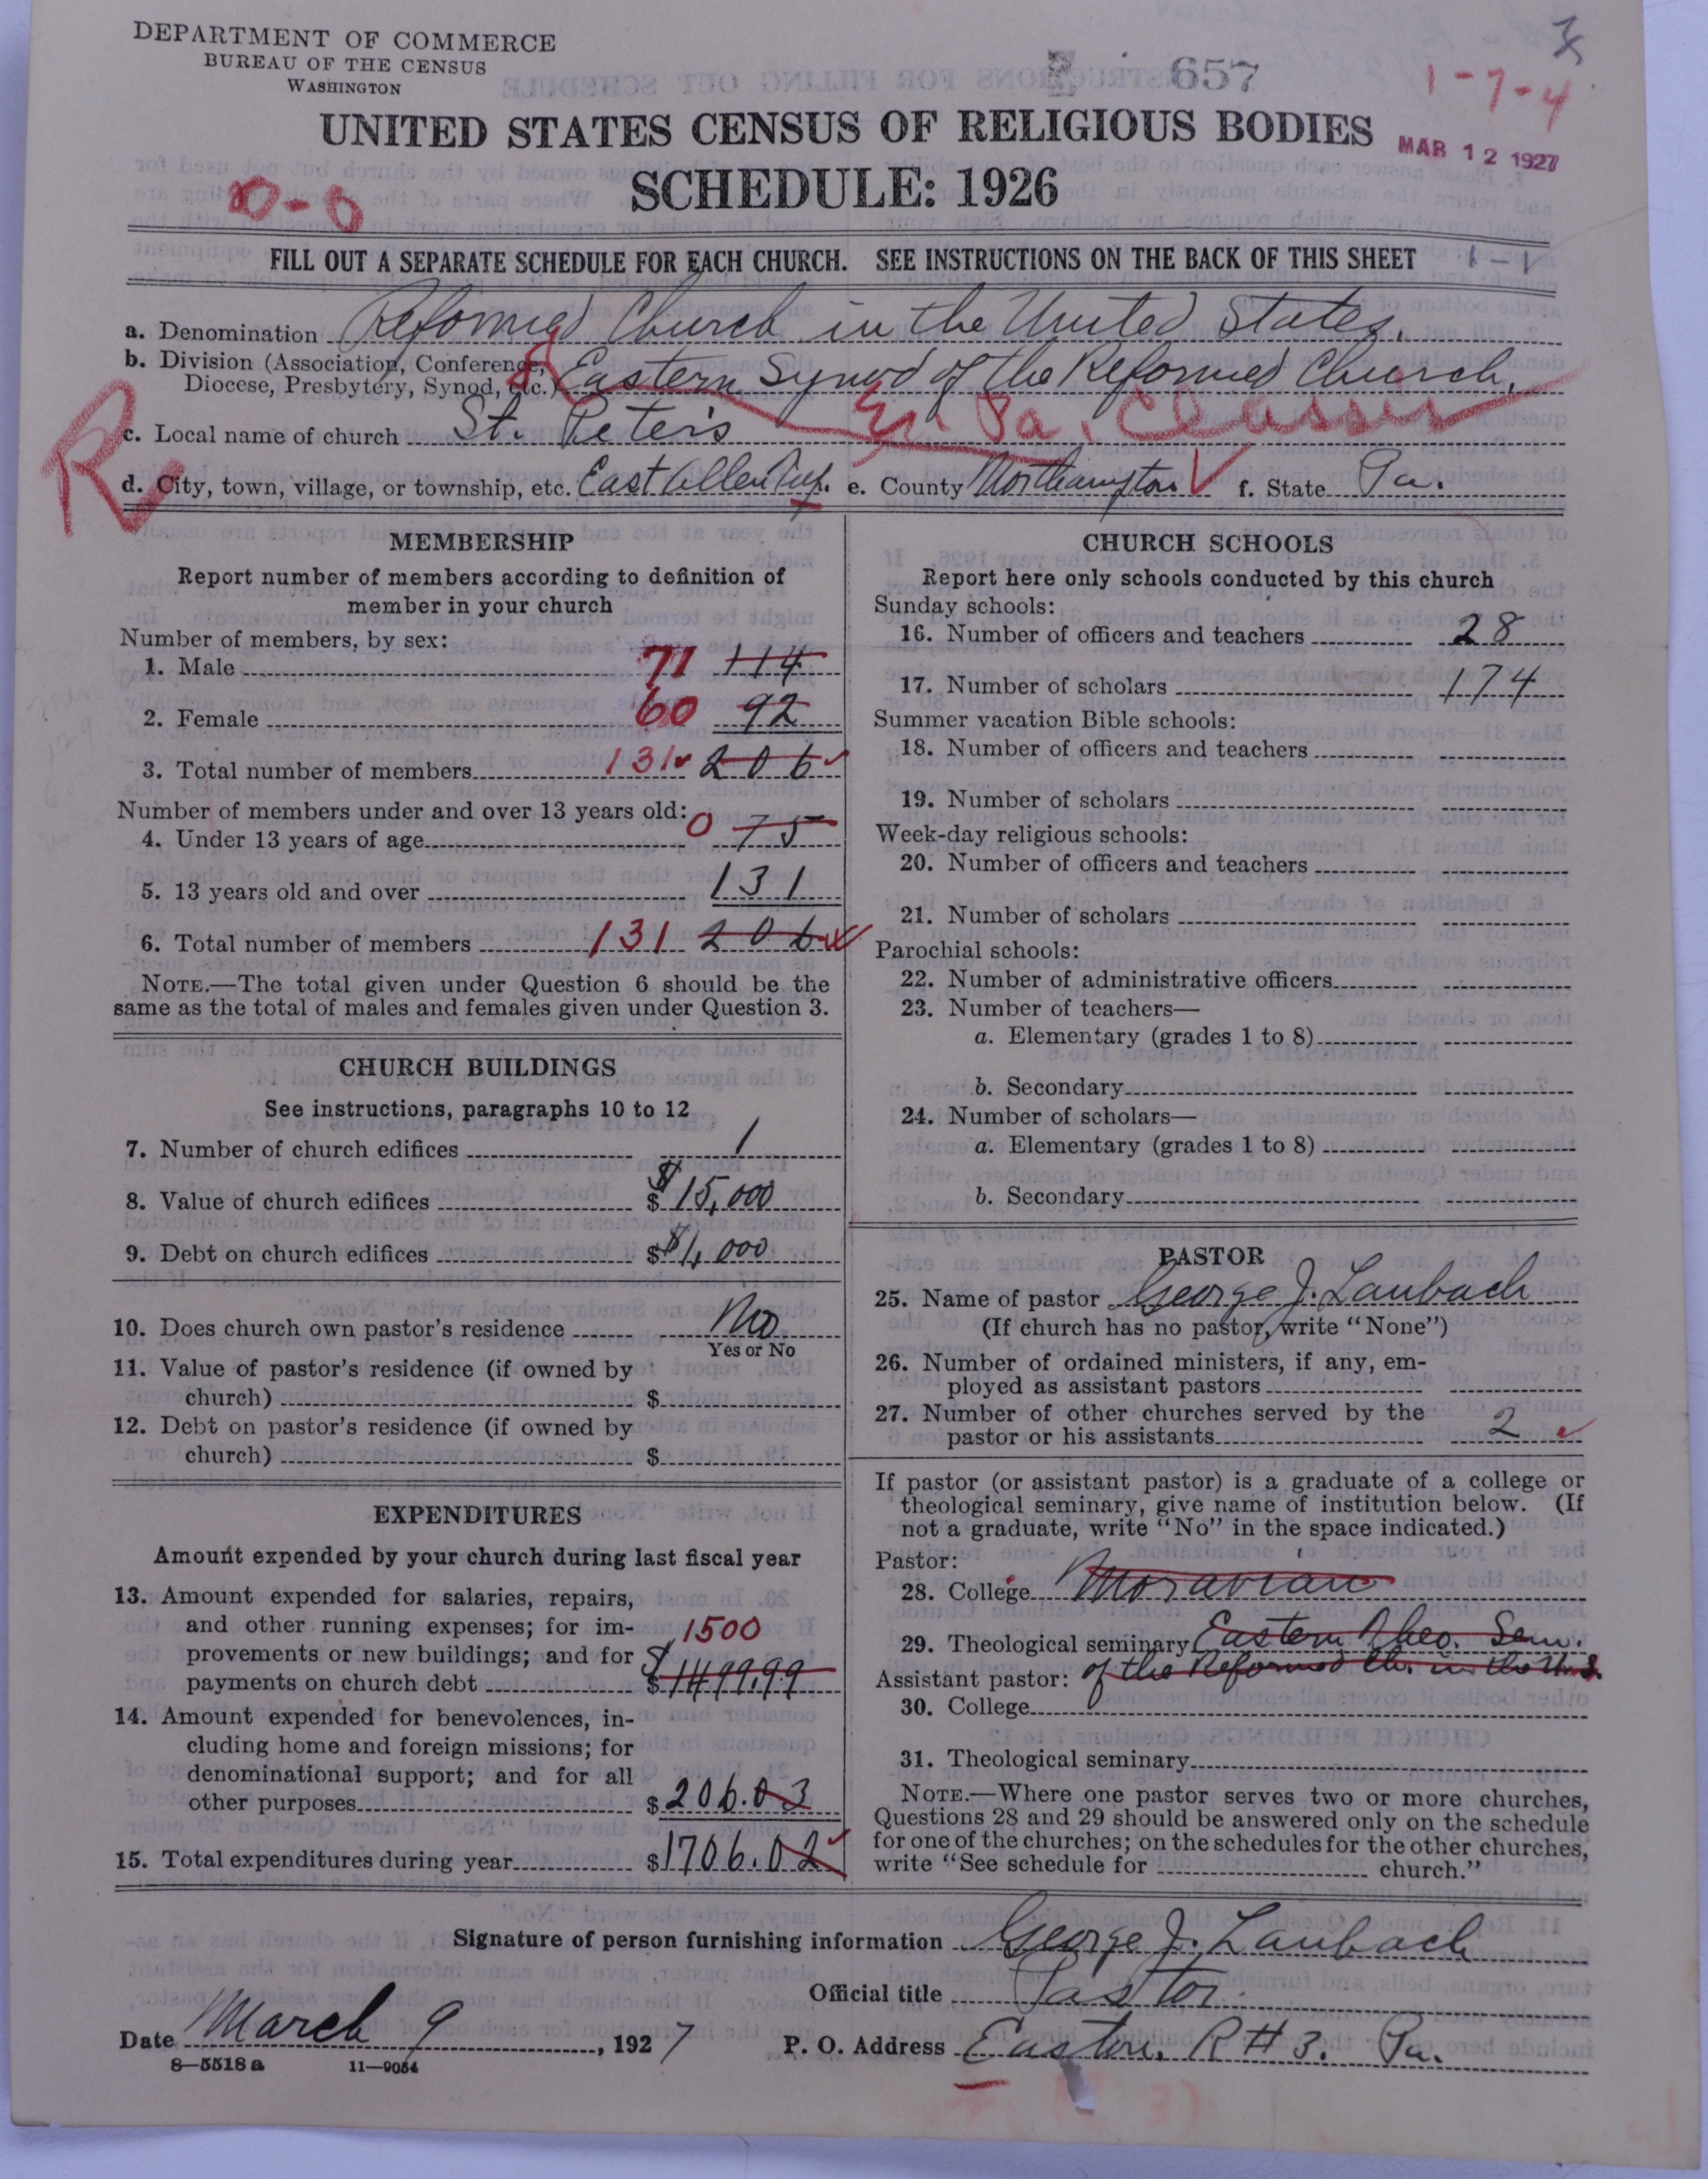 DEPARTMENT OF COMMERCE
BUREAU OF THE CENSUS
WASHINGTON
657
1-7-4
UNITED STATES CENSUS OF RELIGIOUS BODIES
MAR 12 1927
SCHEDULE: 1926
FILL OUT A SEPARATE SCHEDULE FOR EACH CHURCH. SEE INSTRUCTIONS ON THE BACK OF THIS SHEET
1-1
a. Denomination Reformed Church in the United States.
b. Division (Association, Conference, Diocese, Presbytery, Synod, etc.) Eastern Synod of the Reformed Church.
E. Pa. Classis
c. Local name of church St. Peter's
R
d. City, town, village, or township, etc. East Allen Twp. e. County Northampton f. State Pa.
MEMBERSHIP
Report number of members according to definition of
member in your church
Number of members, by sex:
1. Male 71 114
2. Female 60 92
3. Total number of members 131 206
Number of members under and over 13 years old:
4. Under 13 years of age 0 75
5. 13 years old and over 131
6. Total number of members 131 206
NOTE.—The total given under Question 6 should be the
same as the total of males and females given under Question 3.
CHURCH BUILDINGS
See instructions, paragraphs 10 to 12
7. Number of church edifices 1
8. Value of church edifices $ $15,000
9. Debt on church edifices $ $1,000
10. Does church own pastor's residence No
Yes or No
11. Value of pastor's residence (if owned by
church) $
12. Debt on pastor's residence (if owned by
church) $
EXPENDITURES
Amount expended by your church during last fiscal year
13. Amount expended for salaries, repairs,
and other running expenses; for im- 1500
provements or new buildings; and for $
payments on church debt $1499.99
14. Amount expended for benevolences, in-
cluding home and foreign missions; for
denominational support; and for all
other purposes $206.03
15. Total expenditures during year $1706.02
CHURCH SCHOOLS
Report here only schools conducted by this church
Sunday schools:
16. Number of officers and teachers 28
17. Number of scholars 174
Summer vacation Bible schools:
18. Number of officers and teachers
19. Number of scholars
Week-day religious schools:
20. Number of officers and teachers
21. Number of scholars
Parochial schools:
22. Number of administrative officers
23. Number of teachers—
a. Elementary (grades 1 to 8)
b. Secondary
24. Number of scholars—
a. Elementary (grades 1 to 8)
b. Secondary
PASTOR
25. Name of pastor George J. Laubach
(If church has no pastor, write "None")
26. Number of ordained ministers, if any, em-
ployed as assistant pastors
27. Number of other churches served by the
pastor or his assistants 2
If pastor (or assistant pastor) is a graduate of a college or
theological seminary, give name of institution below. (If
not a graduate, write "No" in the space indicated.)
Pastor:
28. College Moravian
29. Theological seminary Eastern Theo. Sem.
Assistant pastor: of the Reformed Ch. in the U.S.
30. College
31. Theological seminary
NOTE.—Where one pastor serves two or more churches,
Questions 28 and 29 should be answered only on the schedule
for one of the churches; on the schedules for the other churches,
write "See schedule for church."
Signature of person furnishing information George J. Laubach
Official title Pastor
Date March 9, 1927 P. O. Address Easton. R # 3. Pa.
8—5518a 11—9054